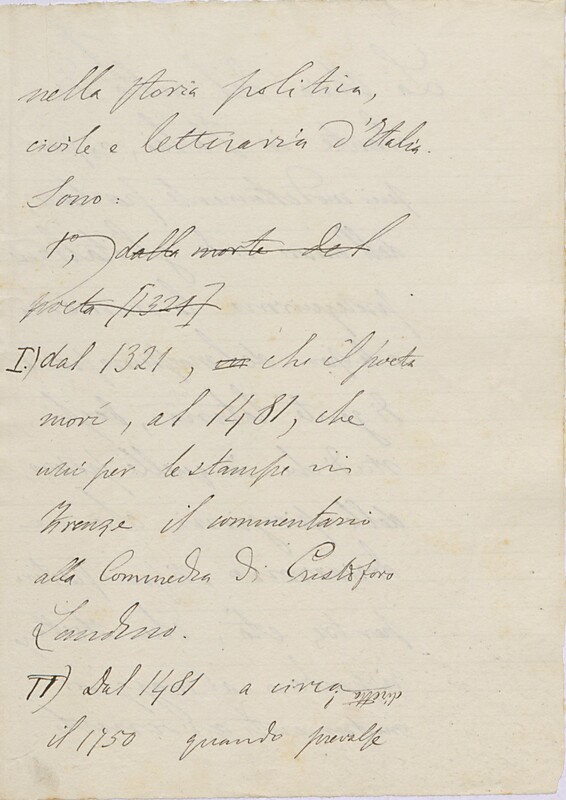 nella storia politica,
civile e letteraria d'Italia.
Sono:
1°, dalla morte del
poeta [1321]
I.) dal 1321, che il poeta
morì, al 1481, che
uscì per le stampe in
Firenze il commentario
alla Commedia di Cristoforo
Landino.
II) Dal 1481 a circa
il 1750 quando prevalse